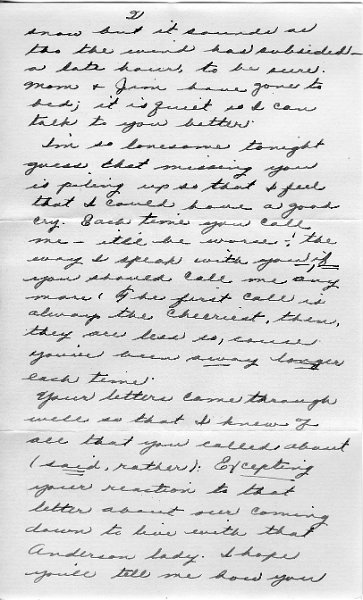 2
snow but it sounds as
tho the wind has subsided –
a late hour, to be sure.
Mom & Jim have gone to
bed; it is quiet so I can
talk to you better.
I'm so lonesome tonight
guess that missing you
is piling up so that I feel
that I could have a good
cry. Each time you call
me – it'll be worse! the
way I speak with you, if
you should call me any
more! The first call is
always the cheeriest, then,
they are less so, cause
you've been away longer
each time.
Your letters came through
well so that I knew of
all that you called about
(said, rather). Excepting
your reaction to that
letter about our coming
down to live with that
Anderson lady. I hope
you'll tell me how you